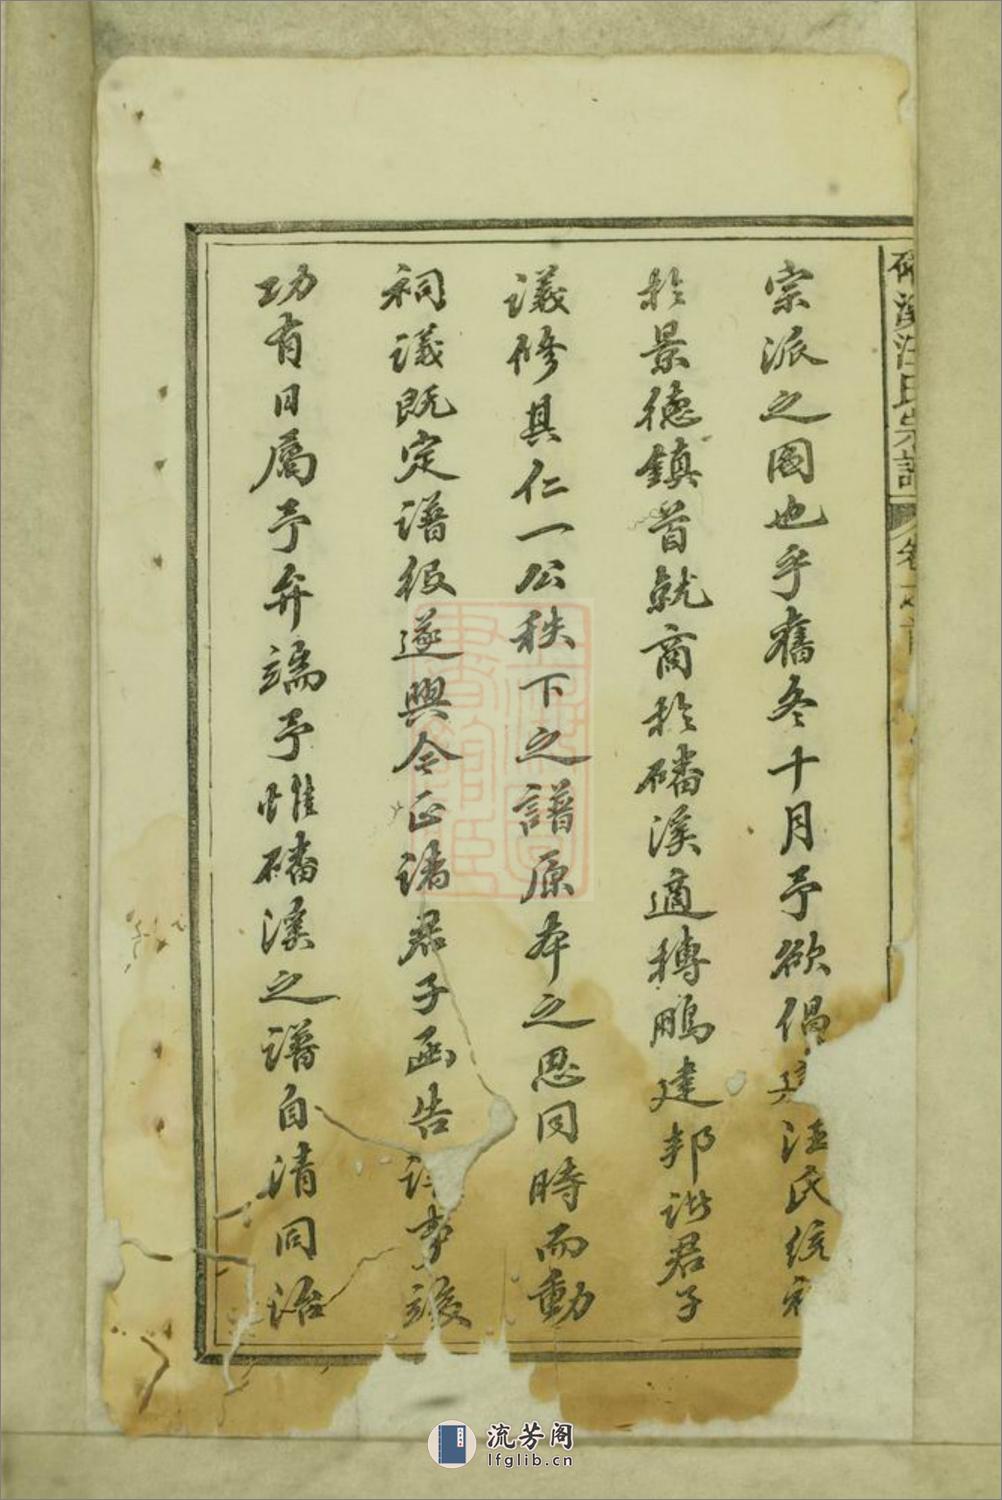 溪汪氏宗譜
宗派之圖也乎舊冬十月予欲倡汪氏統
於景德鎮首就商於磻溪適摶鵬建邦諸君子
議修其仁一公秩下之譜原本之思同時而動
祠議既定譜役遂興今正諸君子函告事竣
功有日屬予弁端予惟磻溪之譜自清同治
流芳阁
lfglib.cn